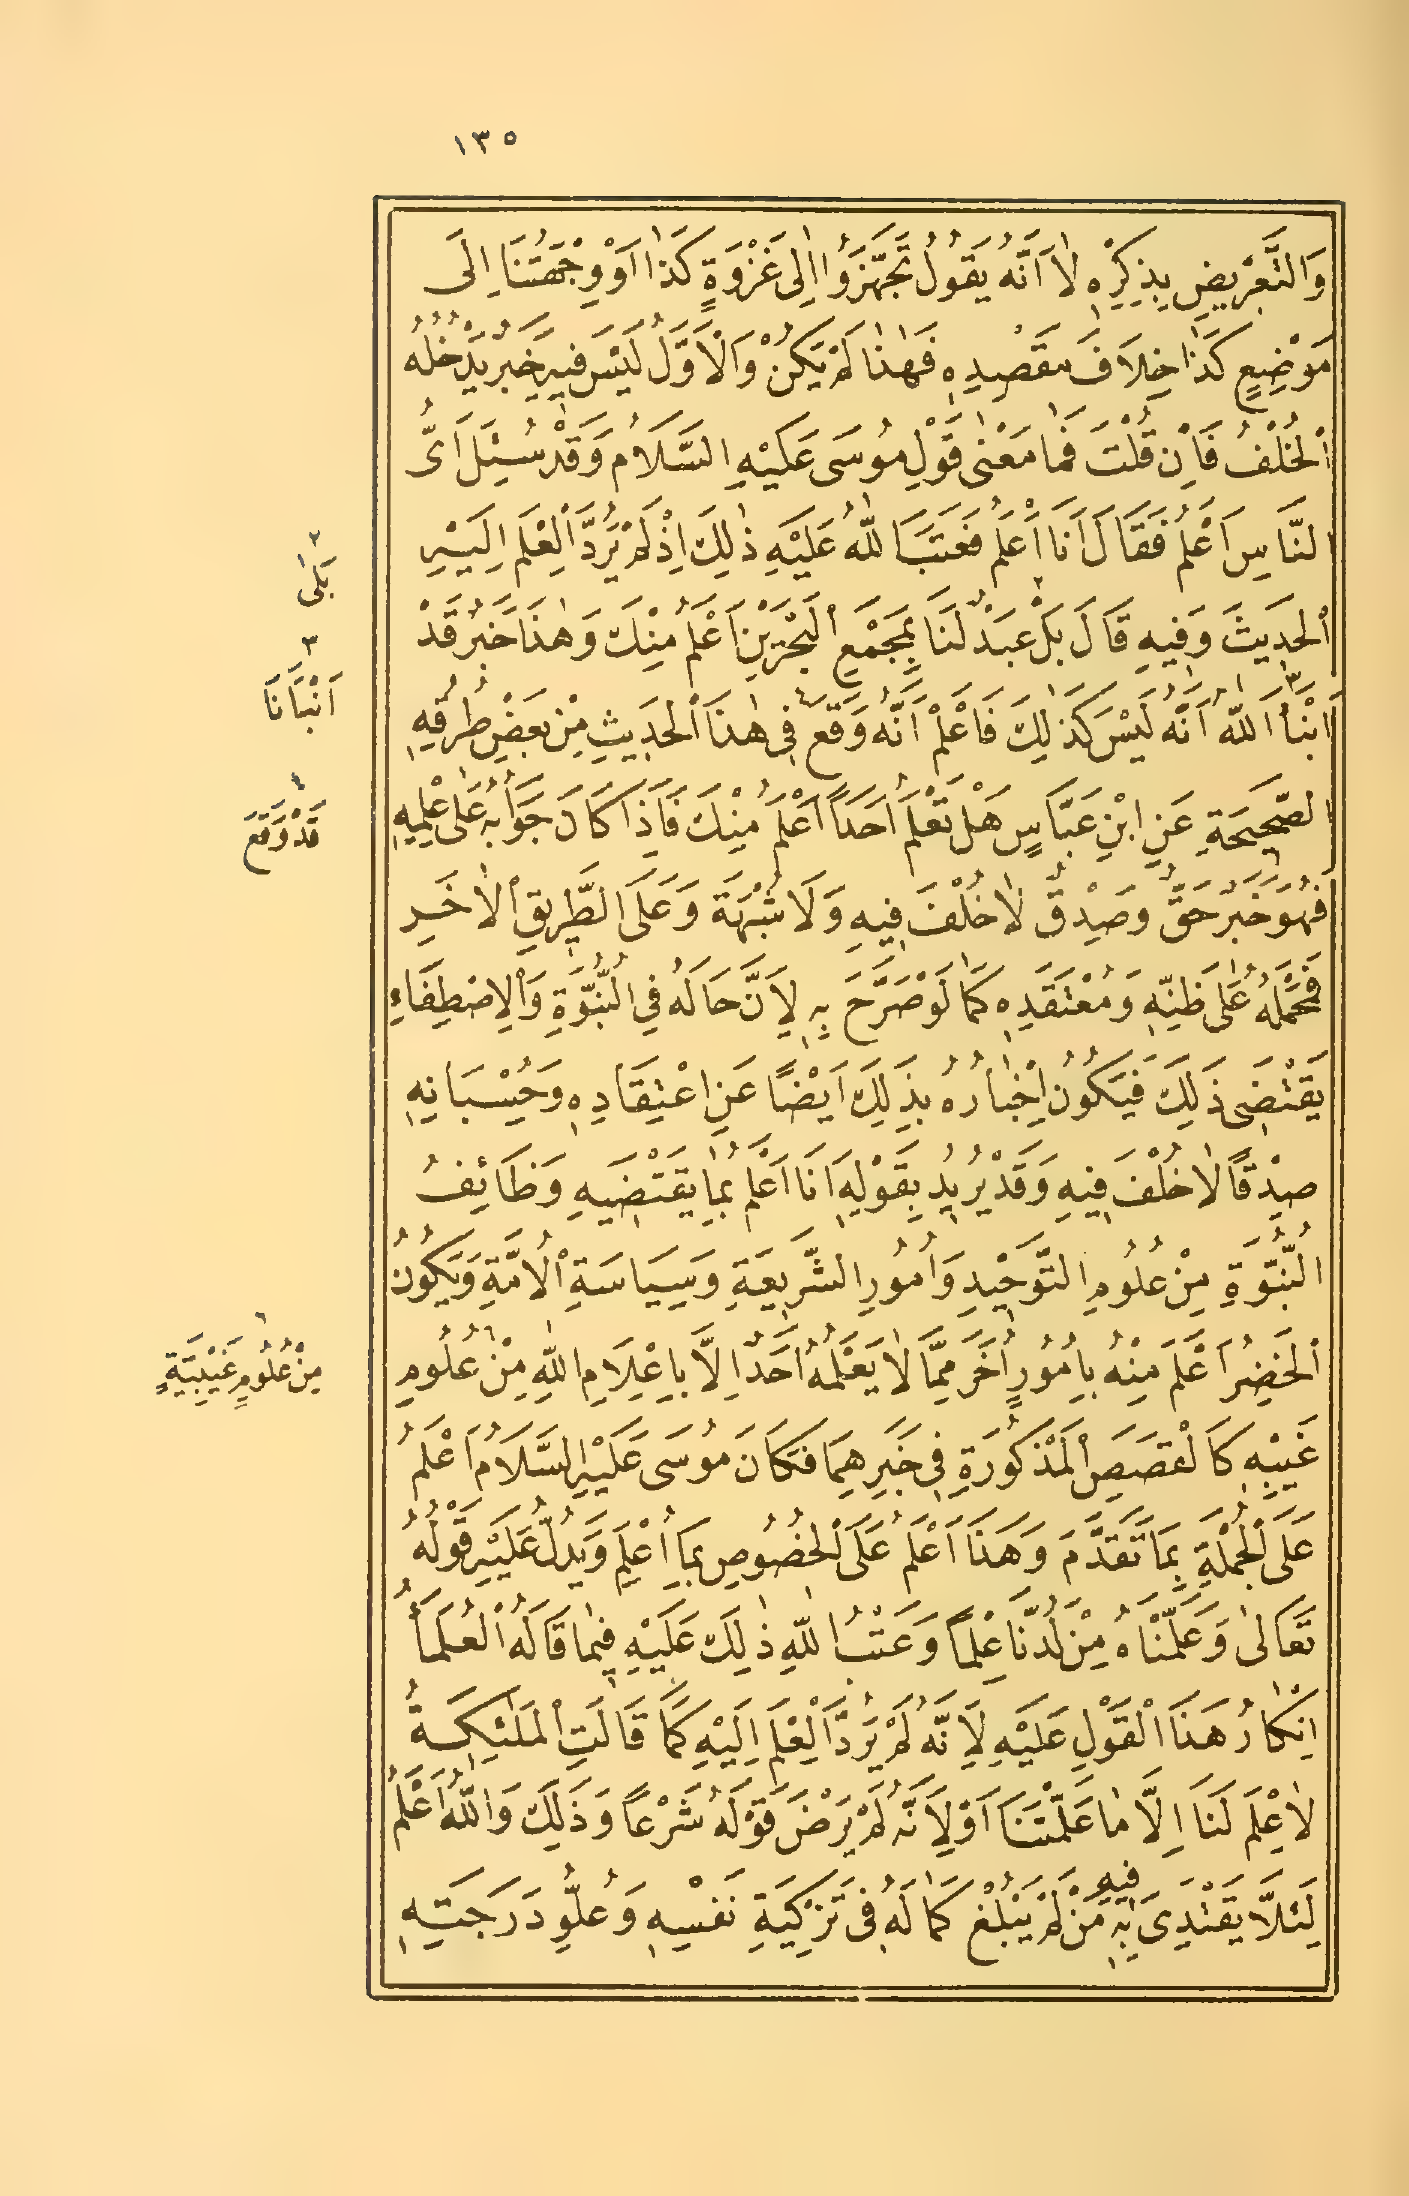 ١٣٥
وَالتَّعْرِيضِ بِذِكْرِهِ لَا اَنَّهُ يَقُولُ تَجَهَّزُوا اِلٰى غَزْوَةٍ كَذَا اَوْ وِجْهَتُنَا اِلٰى
مَوْضِعِ كَذَا خِلَافَ مَقْصِدِهِ فَهٰذَا لَمْ يَكُنْ وَالْاَوَّلُ لَيْسَ فِيهِ خَبَرٌ يَدْخُلُهُ
الْخُلْفُ فَاِنْ قُلْتَ فَمَا مَعْنٰى قَوْلِ مُوسَى عَلَيْهِ السَّلَامُ وَقَدْ سُئِلَ اَىُّ
النَّاسِ اَعْلَمُ فَقَالَ اَنَا اَعْلَمُ فَعَتَبَ اللّٰهُ عَلَيْهِ ذٰلِكَ اِذْ لَمْ يَرُدَّ الْعِلْمَ اِلَيْهِ
الْحَدِيثَ وَفِيهِ قَالَ بَلْ ٢ عَبْدٌ لَنَا بِمَجْمَعِ الْبَحْرَيْنِ اَعْلَمُ مِنْكَ وَهٰذَا خَبَرٌ قَدْ
اَنْبَأَ ٣ اللّٰهُ اَنَّهُ لَيْسَ كَذٰلِكَ فَاعْلَمْ اَنَّهُ وَقَعَ ٤ فِى هٰذَا الْحَدِيثِ مِنْ بَعْضِ طُرُقِهِ
الصَّحِيحَةِ عَنِ ابْنِ عَبَّاسٍ هَلْ تَعْلَمُ اَحَدًا اَعْلَمَ مِنْكَ فَاِذَا كَانَ جَوَابُهُ عَلٰى عِلْمِهِ
فَهُوَ خَبَرٌ حَقٌّ وَصِدْقٌ لَا خُلْفَ فِيهِ وَلَا شُبْهَةَ وَعَلَى الطَّرِيقِ الْاٰخَرِ
فَمَحْمَلُهُ عَلٰى ظَنِّهِ وَمُعْتَقَدِهِ كَمَا لَوْ صَرَّحَ بِهِ لِاَنَّ حَالَهُ فِي النُّبُوَّةِ وَالْاِصْطِفَاءِ
يَقْتَضِى ذٰلِكَ فَيَكُونُ اِخْبَارُهُ بِذٰلِكَ اَيْضًا عَنِ اعْتِقَادِهِ وَحُسْبَانِهِ
صِدْقًا لَا خُلْفَ فِيهِ وَقَدْ يُرِيدُ بِقَوْلِهِ اَنَا اَعْلَمُ بِمَا يَقْتَضِيهِ وَظَائِفُ
النُّبُوَّةِ مِنْ عُلُومِ التَّوْحِيدِ وَاُمُورِ الشَّرِيعَةِ وَسِيَاسَةِ الْاُمَّةِ وَيَكُونُ
الْخَضِرُ اَعْلَمَ مِنْهُ بِاُمُورٍ اُخَرَ مِمَّا لَا يَعْلَمُهُ اَحَدٌ اِلَّا بِاِعْلَامِ اللّٰهِ مِنْ ٦ عُلُومِ
غَيْبِهِ كَالْقِصَصِ الْمَذْكُورَةِ فِى خَبَرِهِمَا فَكَانَ مُوسَى عَلَيْهِ السَّلَامُ اَعْلَمُ
عَلَى الْجُمْلَةِ بِمَا تَقَدَّمَ وَهٰذَا اَعْلَمُ عَلَى الْخُصُوصِ بِمَا اُعْلِمَ وَيَدُلُّ عَلَيْهِ قَوْلُهُ
تَعَالٰى وَعَلَّمْنَاهُ مِنْ لَدُنَّا عِلْمًا وَعَتْبُ اللّٰهِ ذٰلِكَ عَلَيْهِ فِيمَا قَالَهُ الْعُلَمَاءُ
اِنْكَارُ هٰذَا الْقَوْلِ عَلَيْهِ لِاَنَّهُ لَمْ يَرُدَّ الْعِلْمَ اِلَيْهِ كَمَا قَالَتِ الْمَلٰئِكَةُ
لَا عِلْمَ لَنَا اِلَّا مَا عَلَّمْتَنَا اَوْ لِاَنَّهُ لَمْ يَرْضَ قَوْلَهُ شَرْعًا وَذٰلِكَ وَاللّٰهُ اَعْلَمُ
لِئَلَّا يَقْتَدِىَ بِهِ فِيهِ مَنْ لَمْ يَبْلُغْ كَمَالَهُ فِى تَزْكِيَةِ نَفْسِهِ وَعُلُوِّ دَرَجَتِهِ
٢
بَلٰى
٣
اَنْبَأَنَا
٤
قَدْ وَقَعَ
٦
مِنْ عُلُومٍ غَيْبِيَّةٍ